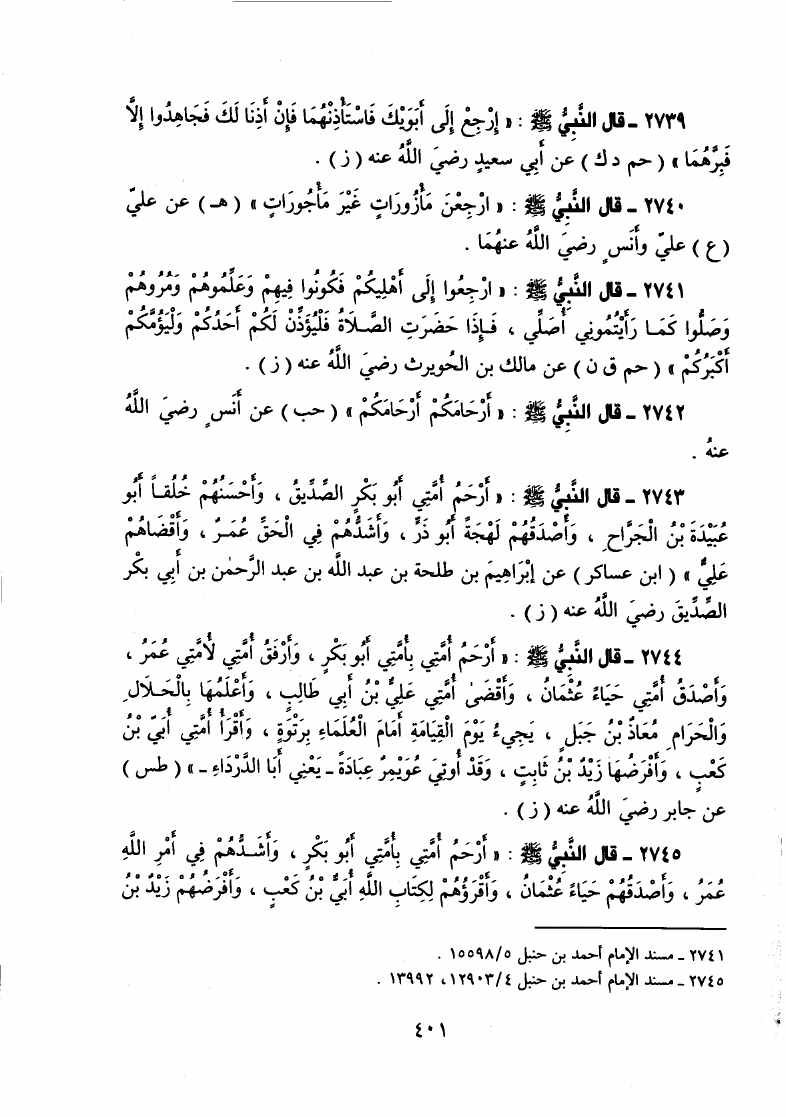 ٢٧٣٩ ـ قال النَّبِيُّ ﷺ : « إِرْجِعْ إِلَى أَبَوَيْكَ فَاسْتَأْذِنْهُمَا فَإِنْ أَذِنَا لَكَ فَجَاهِدُوا إِلَّا
فَبِرَّهُمَا » ( حم د ك ) عن أَبِي سعيدٍ رضيَ اللَّهُ عنه ( ز ) .
٢٧٤٠ ـ قال النَّبِيُّ ﷺ : « ارْجِعْنَ مَأْزُورَاتٍ غَيْرَ مَأْجُورَاتٍ » ( هـ ) عن عليّ
( ع ) عليّ وأَنسٍ رضيَ اللَّهُ عنهُمَا .
٢٧٤١ ـ قال النَّبِيُّ ﷺ : « ارْجِعُوا إِلَى أَهْلِيكُمْ فَكُونُوا فِيهِمْ وَعَلِّمُوهُمْ وَمُرُوهُمْ
وَصَلُّوا كَمَا رَأَيْتُمُونِي أُصَلِّي ، فَإِذَا حَضَرَتِ الصَّلاَةُ فَلْيُؤَذِّنْ لَكُمْ أَحَدُكُمْ وَلْيَؤُمَّكُمْ
أَكْبَرُكُمْ » ( حم ق ن ) عن مالك بن الحُويرث رضيَ اللَّهُ عنه ( ز ) .
٢٧٤٢ ـ قال النَّبِيُّ ﷺ : « أَرْحَامَكُمْ أَرْحَامَكُمْ » ( حب ) عن أَنسٍ رضيَ اللَّهُ
عنهُ .
٢٧٤٣ ـ قال النَّبِيُّ ﷺ : « أَرْحَمُ أُمَّتِي أَبُو بَكْرٍ الصِّدِّيقُ ، وَأَحْسَنُهُمْ خُلُقاً أَبُو
عُبَيْدَةَ بْنُ الْجَرَّاحِ ، وَأَصْدَقُهُمْ لَهْجَةً أَبُو ذَرٍّ ، وَأَشَدُّهُمْ فِي الْحَقِّ عُمَرُ ، وَأَقْضَاهُمْ
عَلِيٌّ » ( ابن عساكر ) عن إِبْرَاهِيمَ بن طلحة بن عبد اللَّه بن عبد الرَّحمٰن بن أَبي بكر
الصِّدِّيقِ رضيَ اللَّهُ عنه ( ز ) .
٢٧٤٤ ـ قال النَّبِيُّ ﷺ : « أَرْحَمُ أُمَّتِي بِأُمَّتِي أَبُو بَكْرٍ ، وَأَرْفَقُ أُمَّتِي لأُمَّتِي عُمَرُ ،
وَأَصْدَقُ أُمَّتِي حَيَاءً عُثْمَانُ ، وَأَقْضَى أُمَّتِي عَلِيُّ بْنُ أَبِي طَالِبٍ ، وَأَعْلَمُهَا بِالْحَلاَلِ
وَالْحَرَامِ مُعَاذُ بْنُ جَبَلٍ ، يَجِيءُ يَوْمَ الْقِيَامَةِ أَمَامَ الْعُلَمَاءِ بِرَتْوَةٍ ، وَأَقْرَأُ أُمَّتِي أُبَيُّ بْنُ
كَعْبٍ ، وَأَفْرَضُهَا زَيْدُ بْنُ ثَابِتٍ ، وَقَدْ أُوتِيَ عُوَيْمِرٌ عِبَادَةً ـ يَعْنِي أَبَا الدَّرْدَاءِ ـ » ( طس )
عن جابر رضيَ اللَّهُ عنه ( ز ) .
٢٧٤٥ ـ قال النَّبِيُّ ﷺ : « أَرْحَمُ أُمَّتِي بِأُمَّتِي أَبُو بَكْرٍ ، وَأَشَدُّهُمْ فِي أَمْرِ اللَّهِ
عُمَرُ ، وَأَصْدَقُهُمْ حَيَاءً عُثْمَانُ ، وَأَقْرَؤُهُمْ لِكِتَابِ اللَّهِ أُبَيُّ بْنُ كَعْبٍ ، وَأَفْرَضُهُمْ زَيْدُ بْنُ
٢٧٤١ ـ مسند الإمام أحمد بن حنبل ١٥٥٩٨/٥ .
٢٧٤٥ ـ مسند الإمام أحمد بن حنبل ١٢٩٠٣/٤ ، ١٣٩٩٢ .
٤٠١